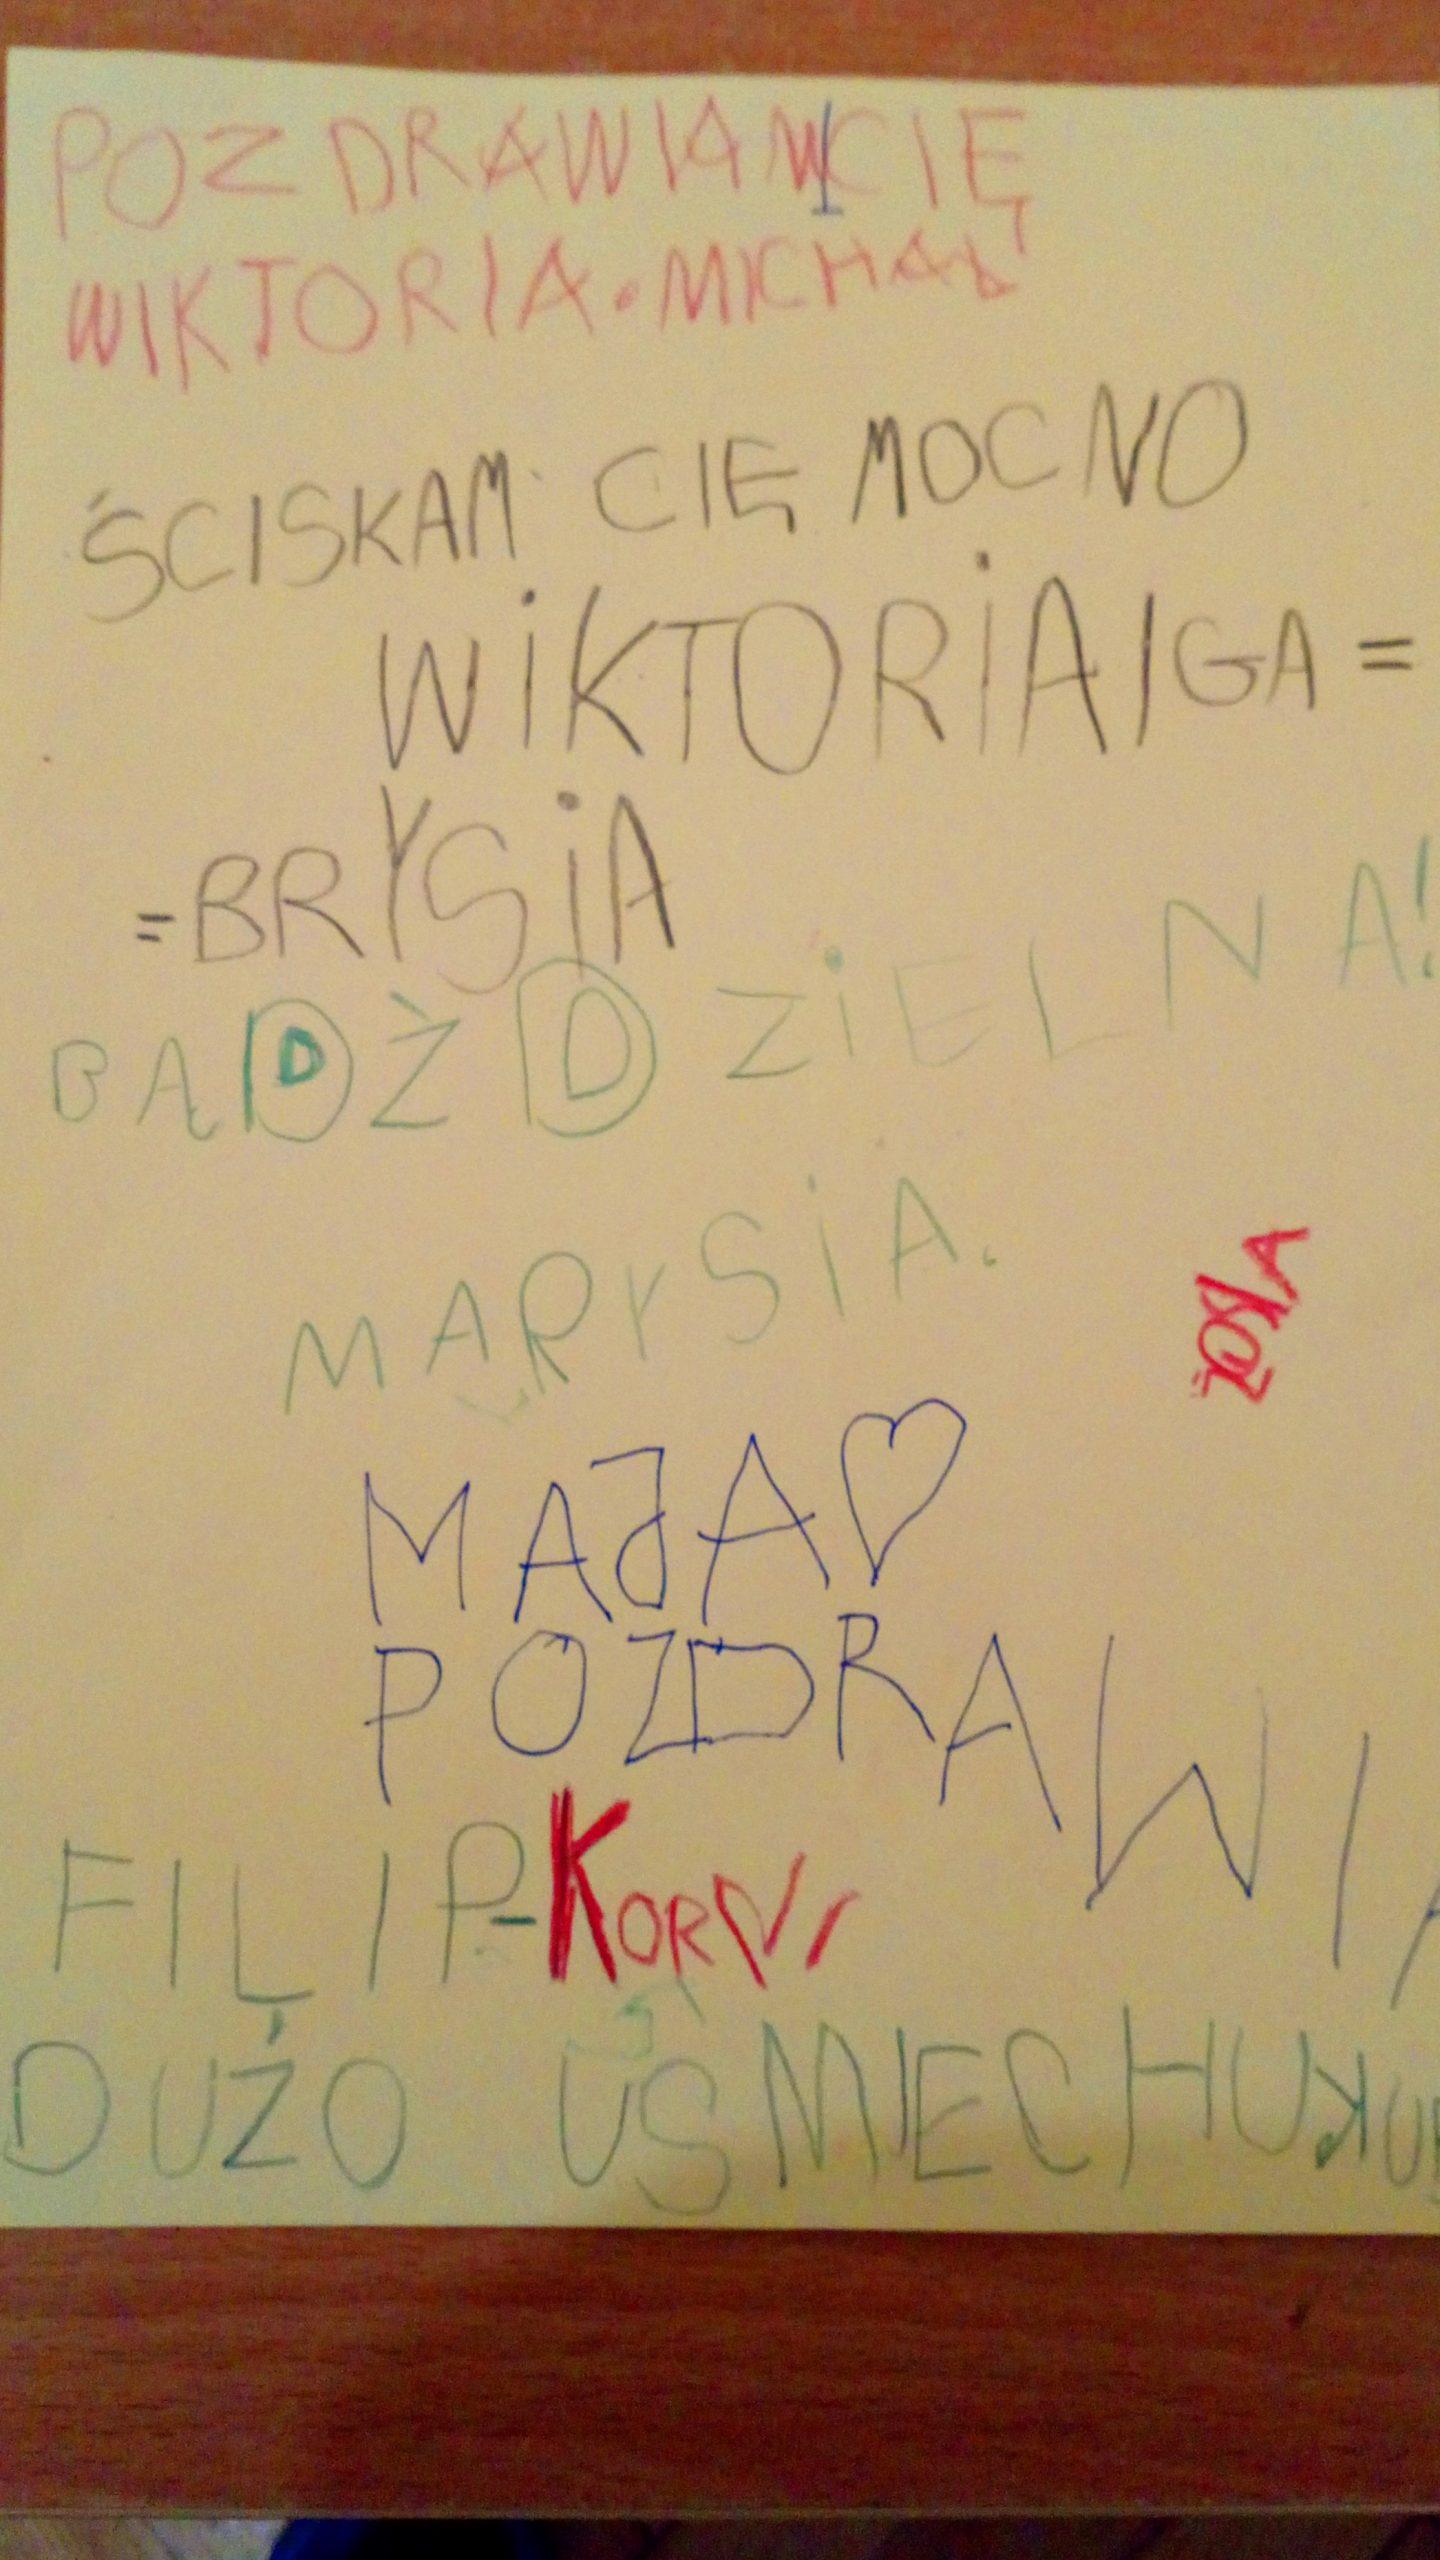 POZDRAWIAM CIĘ
WIKTORIA.MICHAŁ
ŚCISKAM CIĘ MOCNO
WiKTORiA IGA =
=BRYSiA
BĄDŻ DZiELNA!
MARYSiA.
ZOSIA
MAJA♡
POZDRAWIA
FILIP-KORNI
DUŻO UŚMIECHU